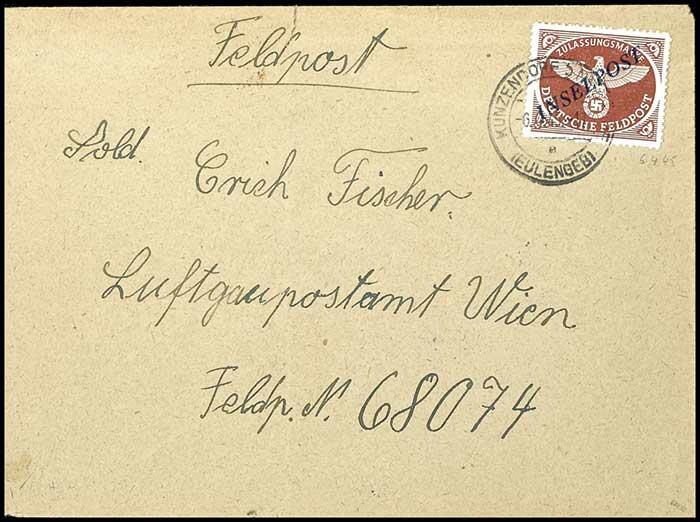 Feldpost
ZULASSUNGSMARKE
INSELPOST
DEUTSCHE FELDPOST
KUNZENDORF
(EULENGEB)
6.4.45
Sold. Erich Fischer.
Luftgaupostamt Wien
Feldp. N. 68074